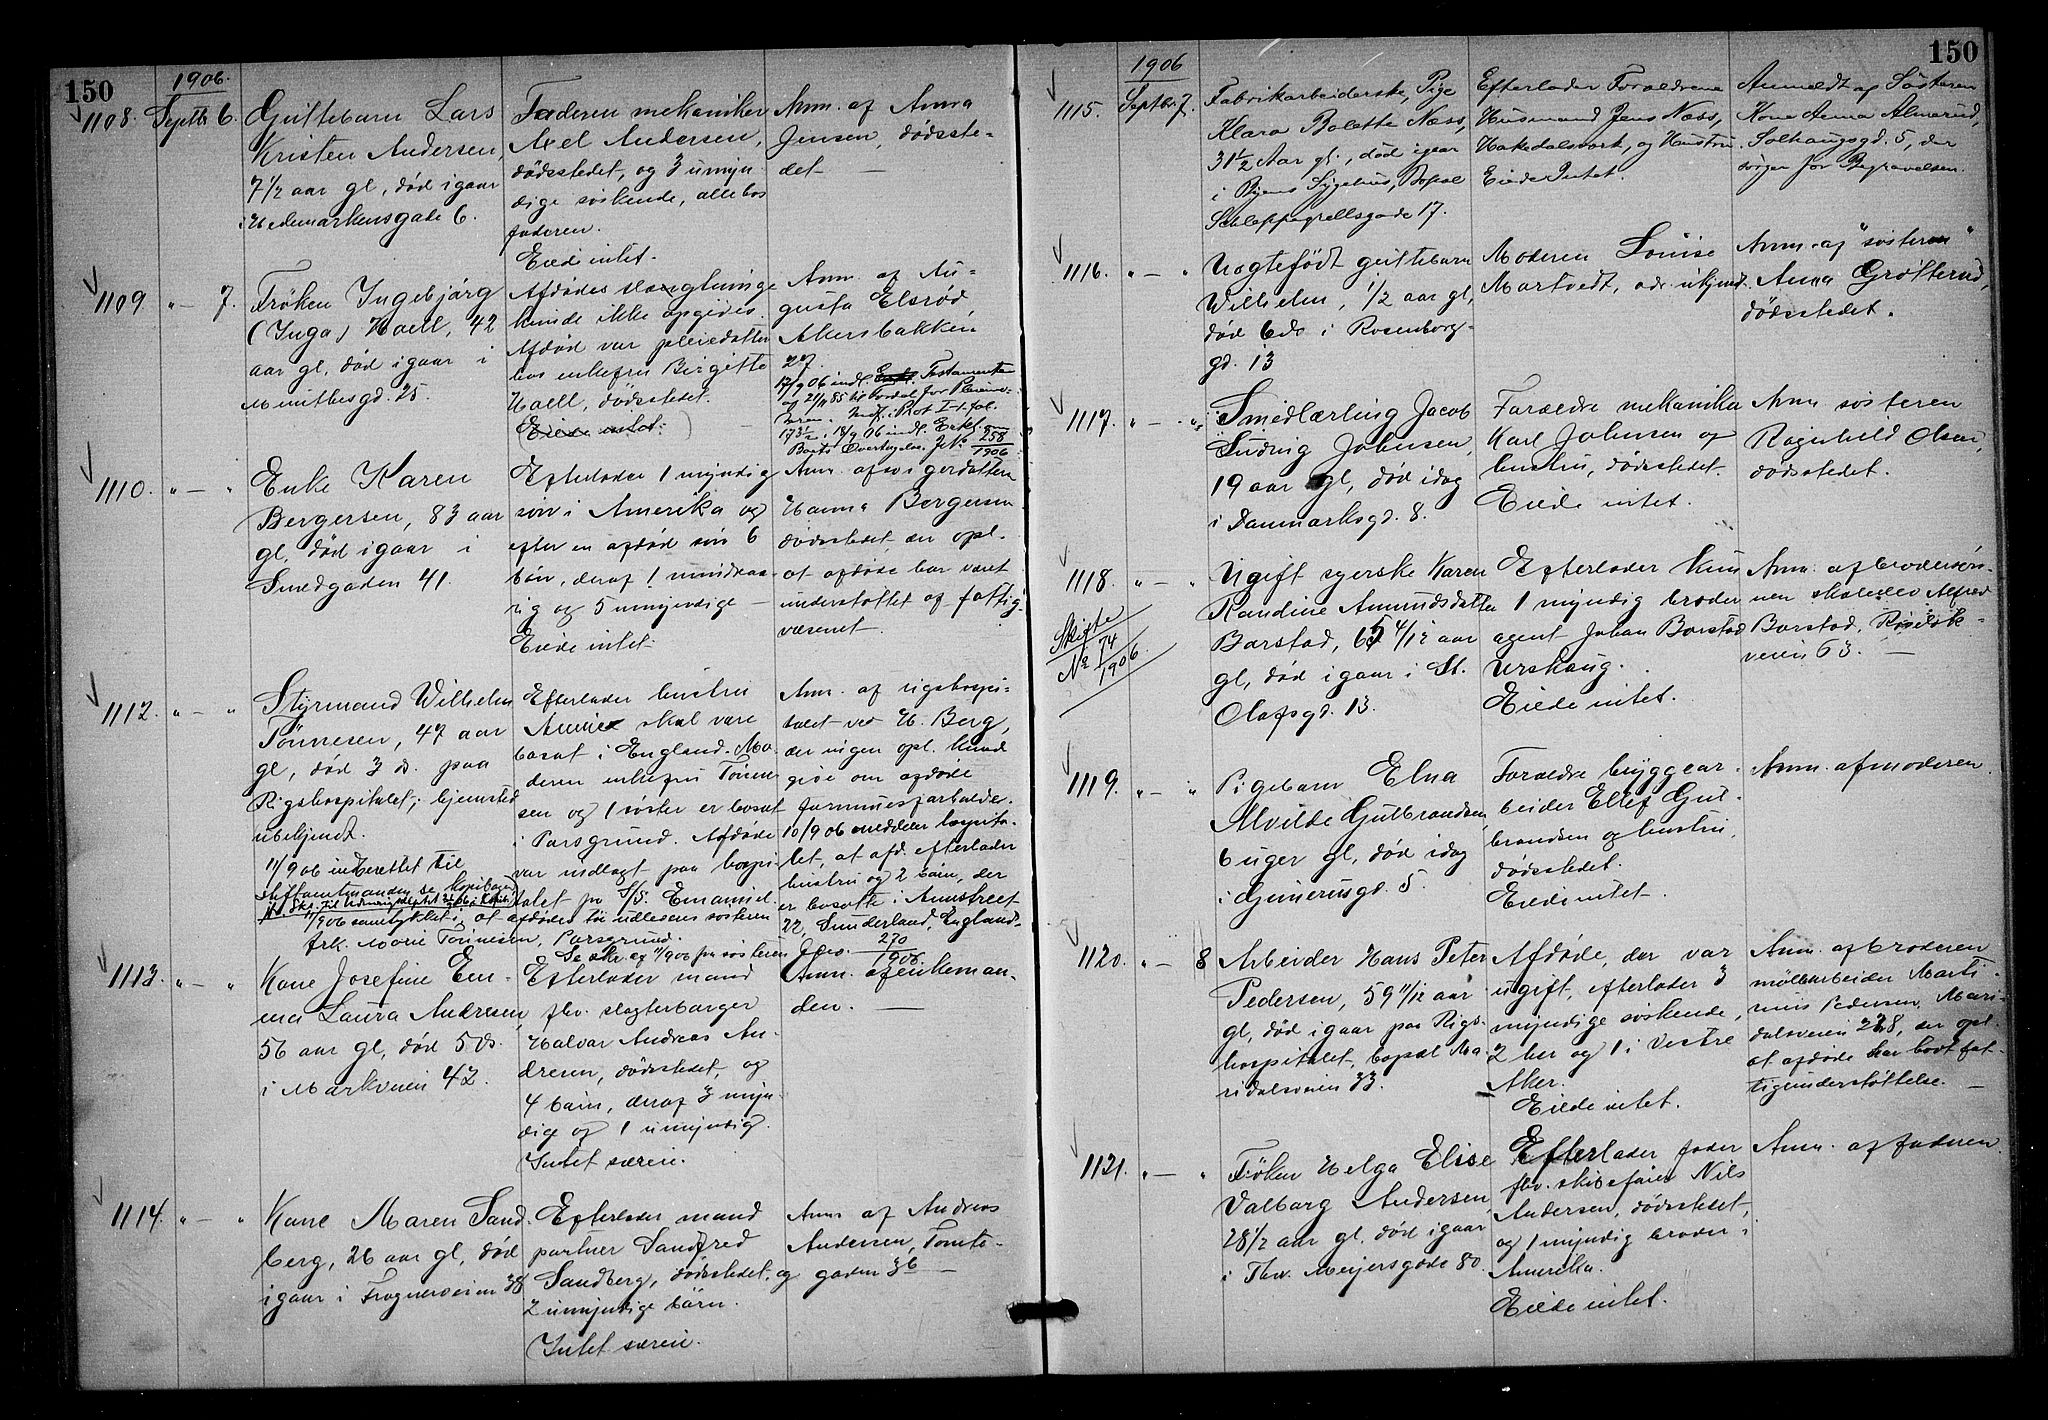 150
1906.
1108. Septbr 6.
Guttebarn Lars
Kristen Andersen,
7 1/2 aar gl, død igaar
i Hedemarkensgade 6.
Faderen mekaniker
Axel Andersen,
dødsstedet, og 3 umyn
dige søskende, alle hos
faderen.
Eiede intet.
Anm. af Anna
Jensen, dødsste-
det —
1109. " 7.
Frøken Ingebjørg
(Inga) Haell, 42
aar gl, død igaar i
Munthesgd. 25.
Afdødes slægtninge
kunde ikke opgives.
Afdød var pleiedatter
hos enkefru Birgitte
Haell, dødsstedet.
Eiede intet.
Anm. af Au-
gusta Elsrød
Akersbakken
27.
17/9 06 indl. Testamente
af 21/11 85 til Fordel for Pleiemo-
deren. Indf. i Prot I t. fol.
173 1/2. 18/9 06 indl. Enkef.
Boets Overtagelse. Jr. No 258/1906
1110. " — "
Enke Karen
Bergersen, 83 aar
gl, død igaar i
Smedgaden 41.
Efterlader 1 myndig
søn i Amerika og
efter en afdød søn 6
børn, deraf 1 mindreaa-
rig og 5 umyndige —
Eiede intet.
Anm. af svigerdatteren
Hanna Bergersen
dødsstedet, der opl.
at afdøde har været
understøttet af fattig-
væsenet.
1112. " — "
Styrmand Wilhelm
Tønnesen, 47 aar
gl, død 3 ds. paa
Rigshospitalet; hjemsted
ubekjendt.
11/9 06 indberettet til
Stiftamtmanden se kopibogen
11/9 06 samtykket i, at afdødes tøi udleveres søsteren
frk. Marie Tønnesen, Porsgrund.
Efterlader hustru
Annie skal være
bosat i England. Mo-
deren enkefru Tønne
sen og 1 søster er bosat
i Porsgrund. Afdøde
var indlagt paa hospi-
talet fra S/S. Emanuel.
Se skr. af 11/9 06 fra søsteren
Anm. af rigshospi-
talet ved H. Berg,
der ingen opl. kunde
give om afdøde
formuesforholde.
10/9 06 meddeler hospita-
let, at afd. efterlader
hustru og 2 børn, der
er bosatte i Annstreet
22, Sunderland, England.
J. No. 270/1906.
1113. " — "
Kone Josefine Em-
ma Laura Andresen,
56 aar gl, død 5 ds.
i Markveien 42.
Efterlader mand
fhv. slagterborger
Halvor Andreas An-
dresen, dødsstedet, og
4 børn, deraf 3 myn-
dige og 1 umyndig.
Intet særeie.
Anm. af enkeman-
den. —
1114. " — "
Kone Maren Sand-
berg, 26 aar gl, død
igaar i Frognerveien 38
Efterlader mand
portner Sandfred
Sandberg, dødsstedet, og
2 umyndige børn.
Intet særeie.
Anm. af Andreas
Andersen, Tomte-
gaden 36 —
150
1906
1115. Septbr 7.
Fabrikarbeiderske, Pige
Klara Bolette Næss,
31 1/2 Aar gl., død igaar
i Byens Sygehus, Bopæl
Schleppegrellsgade 17.
Efterlader Forældrene
Husmand Jens Næss,
Hakedalsverk, og Hustru.
Eiede Intet.
Anmeldt af Søsteren
Kone Anna Almerud,
Solhaugsgd. 5, der
sørger for Begravelsen.
1116. " — "
Uægtefødt guttebarn
Wilhelm, 1/2 aar gl,
død 6 ds i Rosenborg-
gd. 13
Moderen Louise
Martvedt, adr. ukjendt.
Anm. af "søsteren"
Anna Grøtterud,
dødsstedet.
1117. " — "
Smedlærling Jacob
Ludvig Johnsen,
19 aar gl, død idag
i Danmarksgd. 8.
Forældre mekaniker
Karl Johnsen og
hustru, dødsstedet.
Eiede intet.
Anm. søsteren
Ragnhild Olsen,
dødsstedet.
1118. " — "
Skifte
No 74/1906.
Ugift syerske Karen
Randine Amundsdatter
Borstad, 65 4/12 aar
gl, død igaar i St.
Olafsgd. 13.
Efterlader kun
1 myndig broder
agent Johan Borstad
Urskoug.
Eiede intet.
Anm. af brodersøn-
nen skoleelev Alfred
Borstad,
veien 63. —
1119. " — "
Pigebarn Elna
Alvilde Gulbrandsen,
6 uger gl, død idag
i Gjøneriusgd. 5.
Forældre byggear-
beider Ellef Gul-
brandsen og hustru,
dødsstedet.
Eiede intet.
Anm. af moderen.
1120. " — 8
Arbeider Hans Peter
Pedersen, 59 11/12 aar
gl, død igaar paa Rigs-
hospitalet, bopæl Ma-
ridalsveien 33.
Afdøde, der var
ugift, efterlader 3
myndige søskende,
2 her og 1 i Vestre
Aker.
Eiede intet.
Anm. af broderen
møllearbeider Marti-
nius Pedersen, Mari-
dalsveien 228, der opl.
at afdøde har havt fat-
tigunderstøttelse. —
1121. " — "
Frøken Helga Elise
Valborg Andersen,
28 1/2 aar gl. død igaar
i Thv. Meyersgade 80.
Efterlader fader
fhv. skibsfører Nils
Andersen, dødsstedet,
og 1 myndig broder i
Amerika.
Eiede intet.
Anm. af faderen.